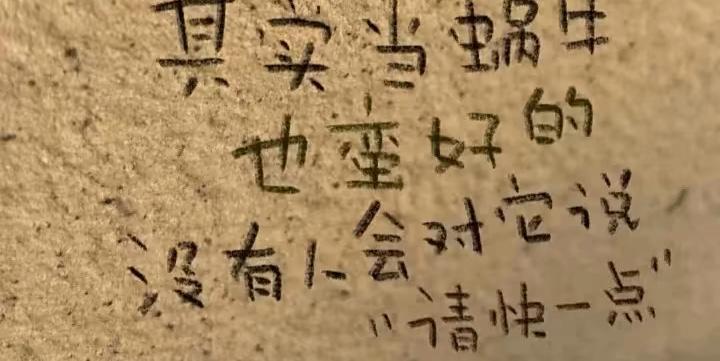 其实当蜗牛
也蛮好的
没有人会对它说
"请快一点"